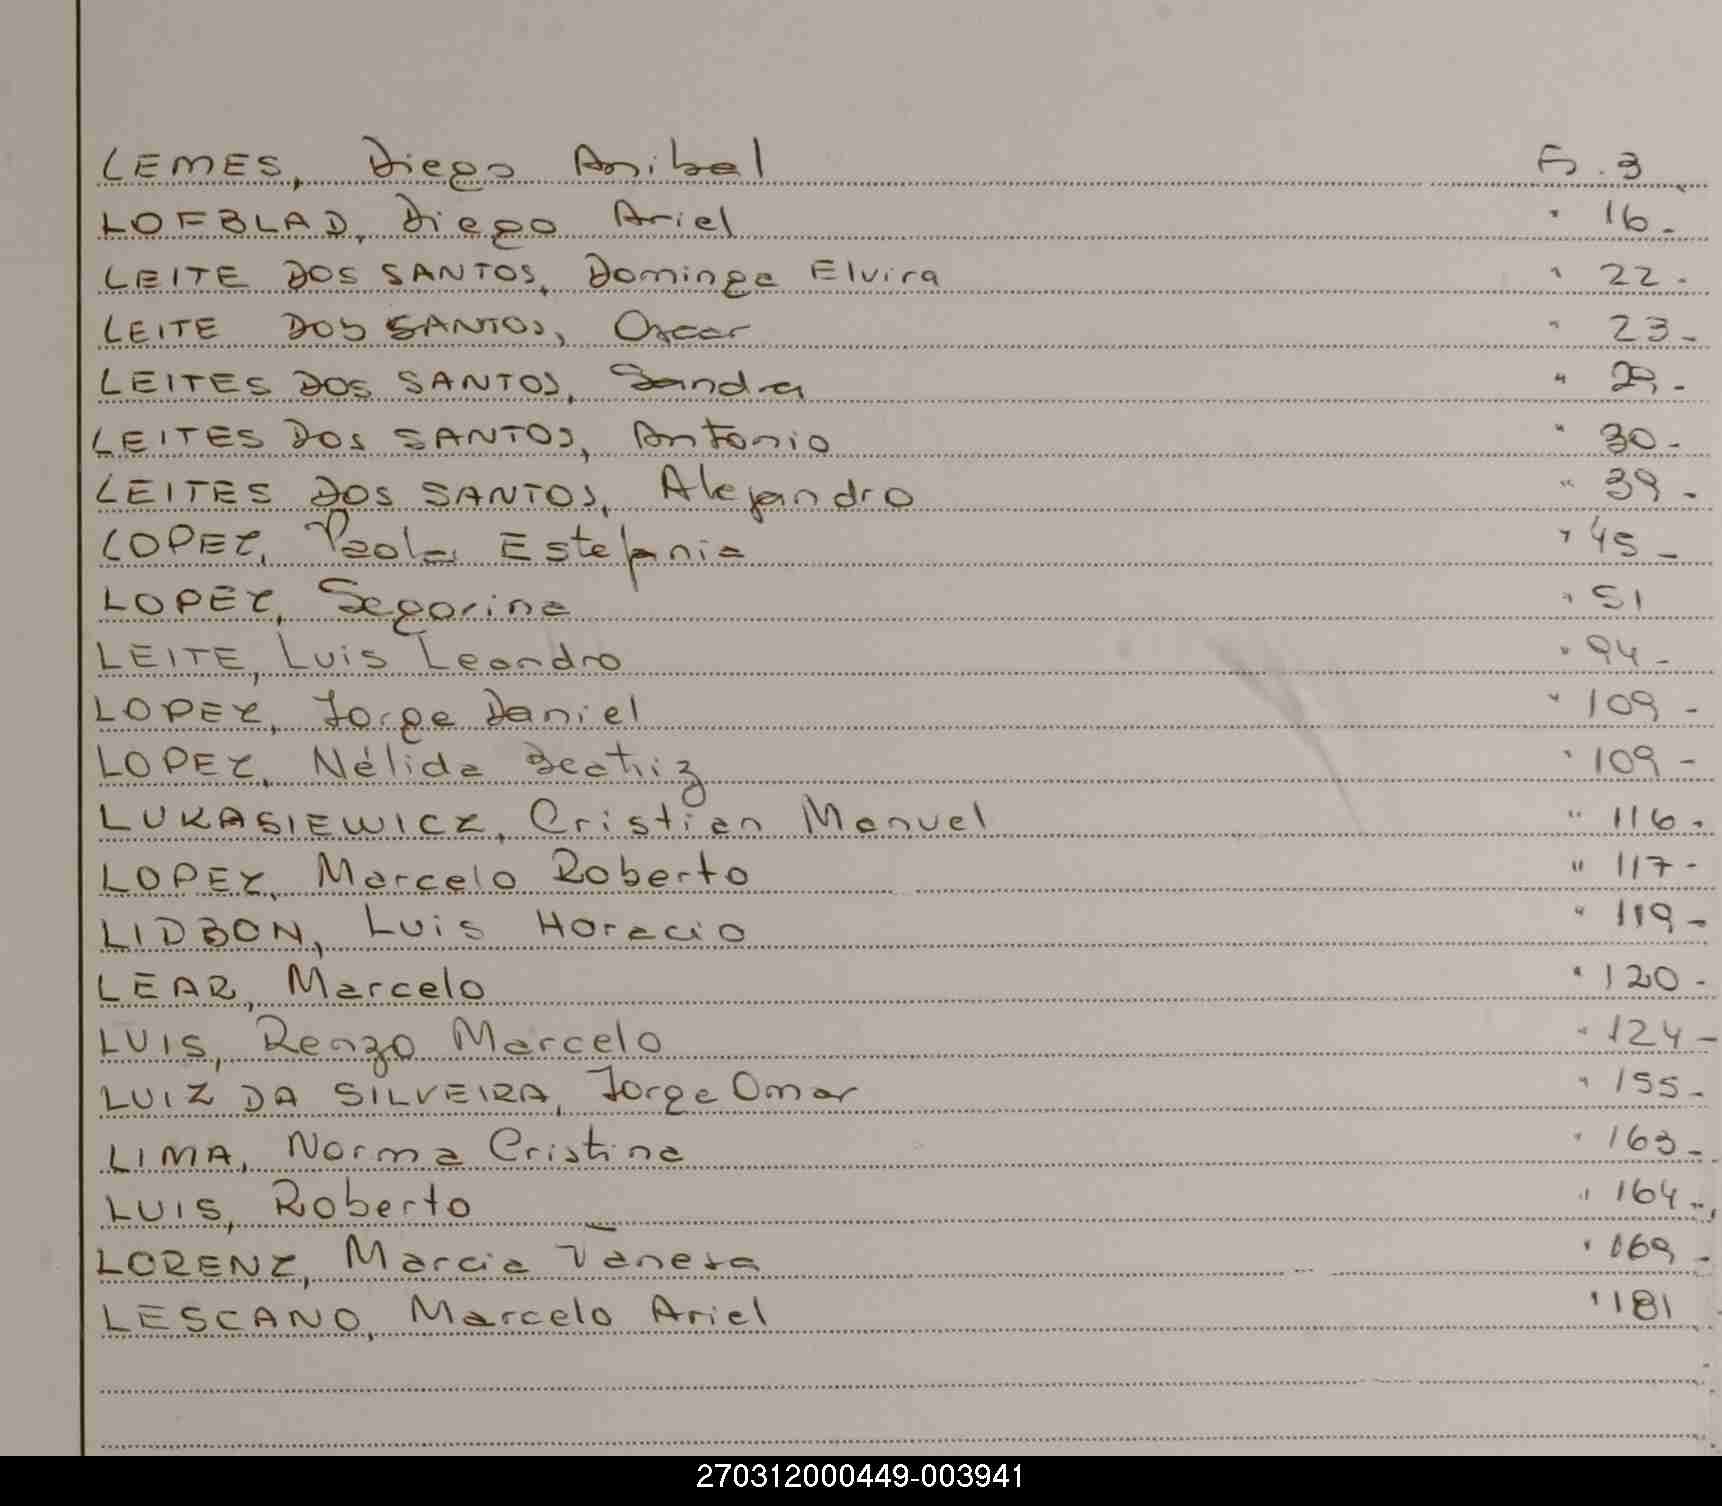 LEMES, Diego Anibal Fs. 3
LOFBLAD, Diego Ariel " 16-
LEITE DOS SANTOS, Dominga Elvira " 22-
LEITE DOS SANTOS, Oscar " 23-
LEITES DOS SANTOS, Sandra " 29-
LEITES DOS SANTOS, Antonio " 30-
LEITES DOS SANTOS, Alejandro " 39-
LOPEZ, Paola Estefania " 45-
LOPEZ, Segorina " 51
LEITE, Luis Leandro " 94-
LOPEZ, Jorge Daniel " 109-
LOPEZ, Nélida Beatriz " 109-
LUKASIEWICZ, Cristian Manuel " 116.
LOPEZ, Marcelo Roberto " 117-
LIDBON, Luis Horacio " 119-
LEAR, Marcelo " 120-
LUIS, Renzo Marcelo " 124-
LUIZ DA SILVEIRA, Jorge Omar " 155-
LIMA, Norma Cristina " 163-
LUIS, Roberto " 164-
LORENZ, Marcia Vanesa " 169-
LESCANO, Marcelo Ariel " 181
270312000449-003941